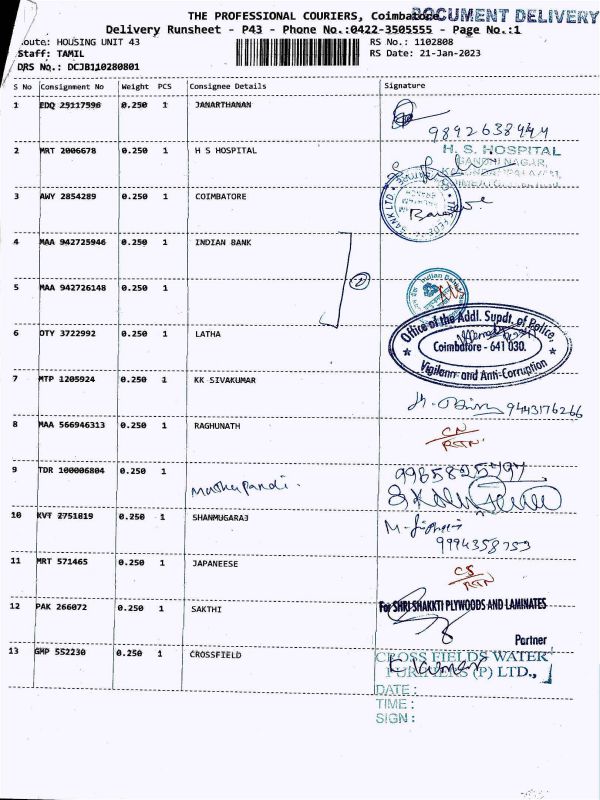 THE PROFESSIONAL COURIERS, Coimbatore
DOCUMENT DELIVERY
Delivery Runsheet - P43 - Phone No.:0422-3505555 - Page No.:1
Route: HOUSING UNIT 43
RS No.: 1102808
Staff: TAMIL
RS Date: 21-Jan-2023
DRS No.: DCJB110280801
S No Consignment No Weight PCS Consignee Details Signature
1 EDQ 25117596 0.250 1 JANARTHANAN
9892638444
2 MRT 2006678 0.250 1 H S HOSPITAL
H. S. HOSPITAL
GANDHI NAGAR,
3 AWY 2854289 0.250 1 COIMBATORE
BANK LTD. * THE FEDE
4 MAA 942725946 0.250 1 INDIAN BANK
2
5 MAA 942726148 0.250 1
Indian Bank
6 DTY 3722992 0.250 1 LATHA
Office of the Addl. Supdt. of Police,
Coimbatore - 641 030.
Vigilance and Anti-Corruption
7 MTP 1205924 0.250 1 KK SIVAKUMAR
9443176266
8 MAA 566946313 0.250 1 RAGHUNATH
CN
RETN
9 TDR 100006804 0.250 1
Muthupandi.
10 KVT 2751819 0.250 1 SHANMUGARAJ
11 MRT 571465 0.250 1 JAPANEESE
CS
RETN
12 PAK 266072 0.250 1 SAKTHI
For SHRI SHAKKTI PLYWOODS AND LAMINATES
Partner
13 GMP 552230 0.250 1 CROSSFIELD
CROSS FIELDS WATER
PURIFIERS (P) LTD.,
DATE :
TIME :
SIGN :